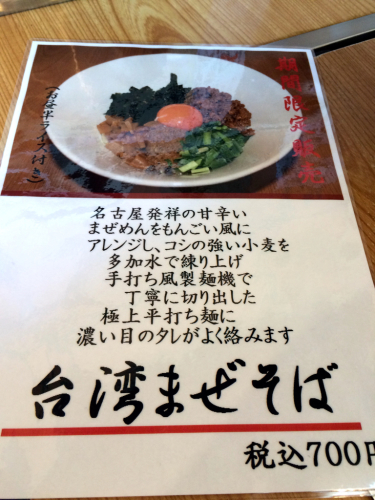 期間限定販売
(お昼半ライス付き)
名古屋発祥の甘辛い
まぜめんをもんごい風に
アレンジし、コシの強い小麦を
多加水で練り上げ
手打ち風製麺機で
丁寧に切り出した
極上平打ち麺に
濃い目のタレがよく絡みます
台湾まぜそば
税込700円